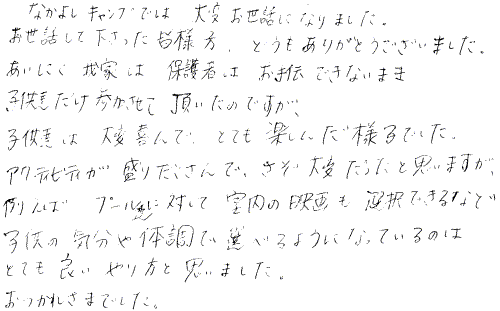 なかよしキャンプでは 大変お世話になりました。
お世話して下さった皆様方、どうもありがとうございました。
あいにく我家は保護者はお手伝できないまま
子供達だけ参加させて頂いたのですが、
子供達は大変喜んで、とても楽しんだ様子でした。
アクティビティが盛りだくさんで、さぞ大変だったと思いますが、
例えば プールに対して室内の映画も選択できるなど
子供の気分や体調で選べるようになっているのは
とても良いやり方と思いました。
おつかれさまでした。